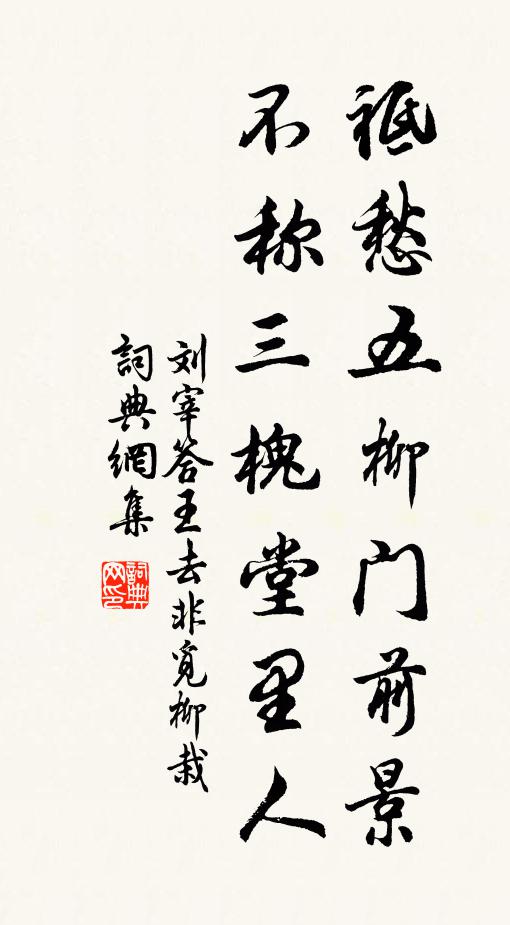 祗愁五柳门前景
不称三槐堂里人
刘宰答王去非觅柳栽
詞典網集
詞典网印